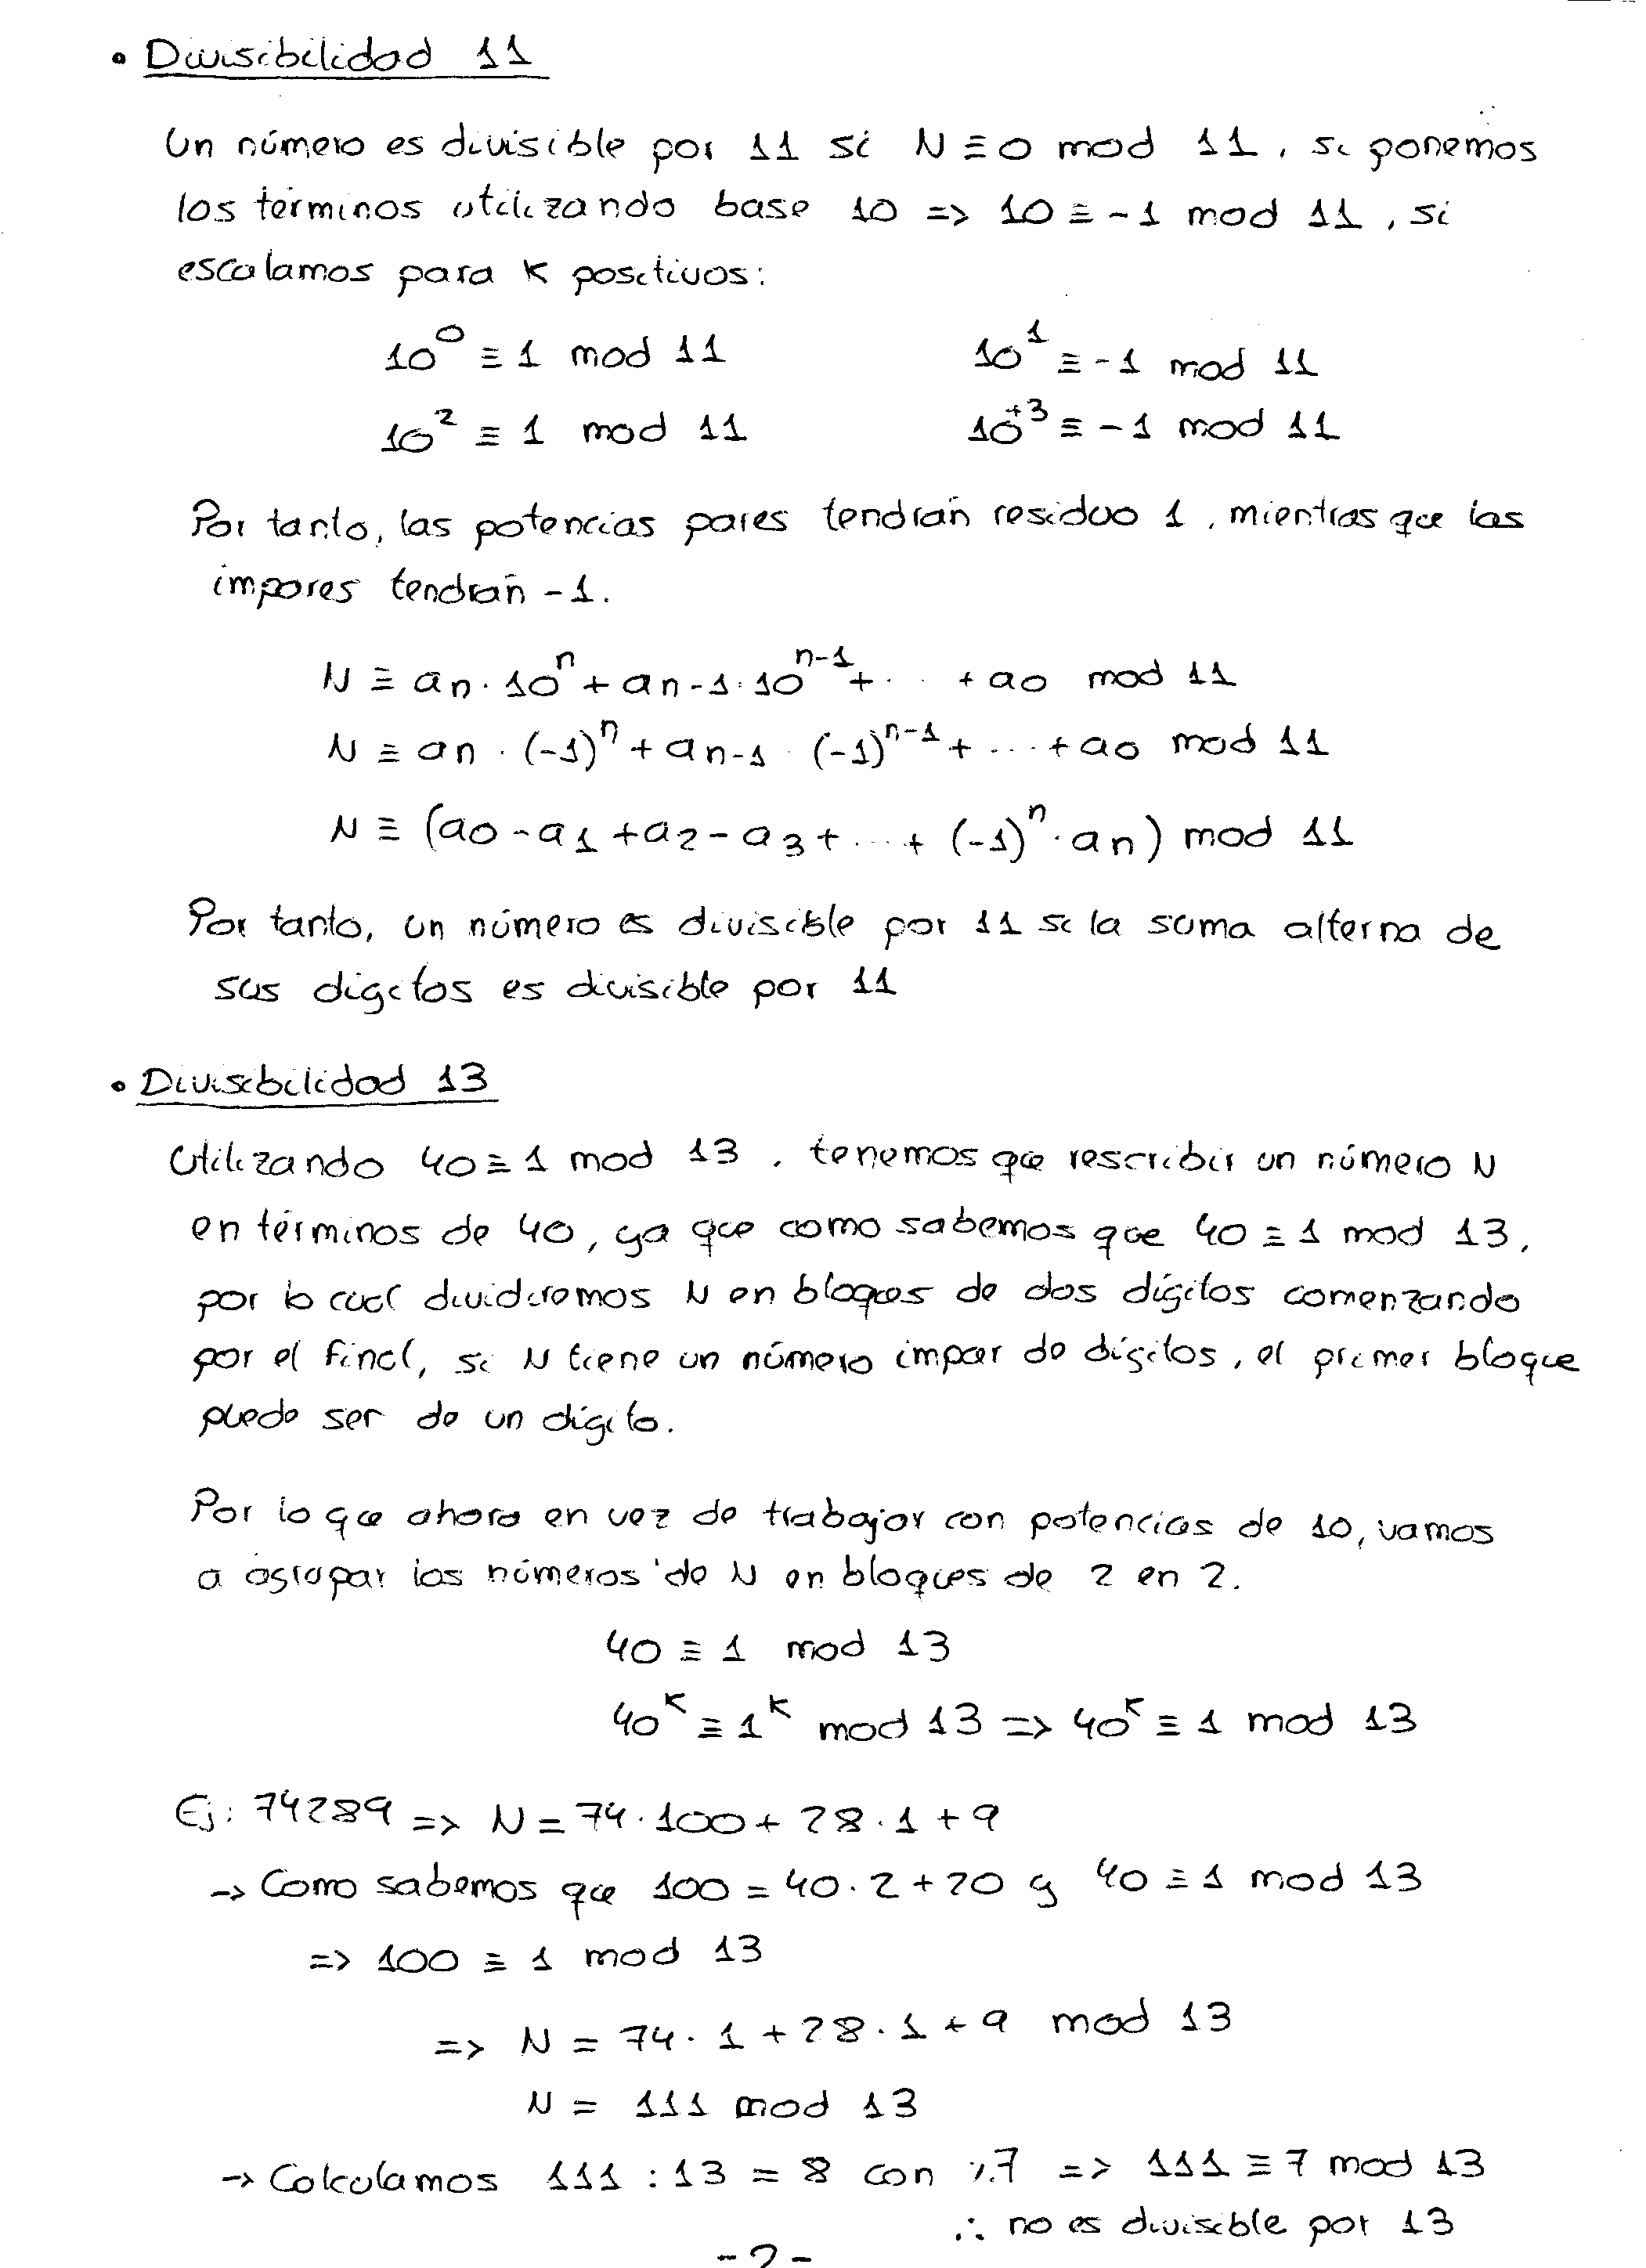 • Divisibilidad 11
Un número es divisible por 11 si N ≡ 0 mod 11, si ponemos
los términos utilizando base 10 => 10 ≡ -1 mod 11, si
escalamos para K positivos:
10^0 ≡ 1 mod 11    10^1 ≡ -1 mod 11
10^2 ≡ 1 mod 11    10^+3 ≡ -1 mod 11
Por tanto, las potencias pares tendrán residuo 1, mientras que las
impares tendrán -1.
N ≡ an · 10^n + an-1 · 10^n-1 + ... + a0 mod 11
N ≡ an · (-1)^n + an-1 · (-1)^n-1 + ... + a0 mod 11
N ≡ (a0 - a1 + a2 - a3 + ... + (-1)^n · an) mod 11
Por tanto, un número es divisible por 11 si la suma alterna de
sus dígitos es divisible por 11
• Divisibilidad 13
Utilizando 40 ≡ 1 mod 13, tenemos que rescribir un número N
en términos de 40, ya que como sabemos que 40 ≡ 1 mod 13,
por lo cual dividiremos N en bloques de dos dígitos comenzando
por el final, si N tiene un número impar de dígitos, el primer bloque
puede ser de un dígito.
Por lo que ahora en vez de trabajar con potencias de 10, vamos
a agrupar los números de N en bloques de 2 en 2.
40 ≡ 1 mod 13
40^K ≡ 1^K mod 13 => 40^K ≡ 1 mod 13
Ej: 74289 => N = 74 · 100 + 28 · 1 + 9
-> Como sabemos que 100 = 40 · 2 + 20 y 40 ≡ 1 mod 13
=> 100 ≡ 1 mod 13
=> N = 74 · 1 + 28 · 1 + 9 mod 13
N = 111 mod 13
-> Calculamos 111 : 13 = 8 con %7 => 111 ≡ 7 mod 13
∴ no es divisible por 13
-2-